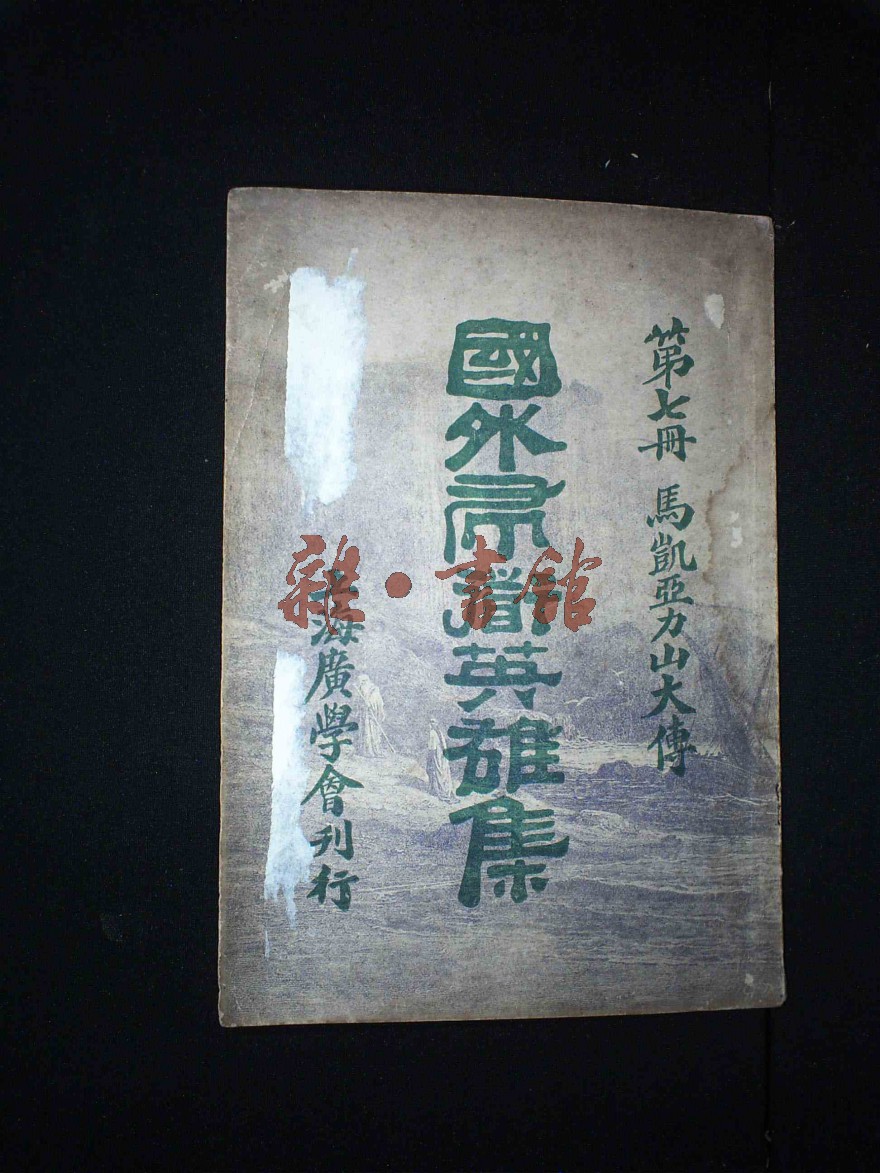 第七冊 馬凱亞力山大傳
國外布道英雄集
上海廣學會刊行
雜·書館